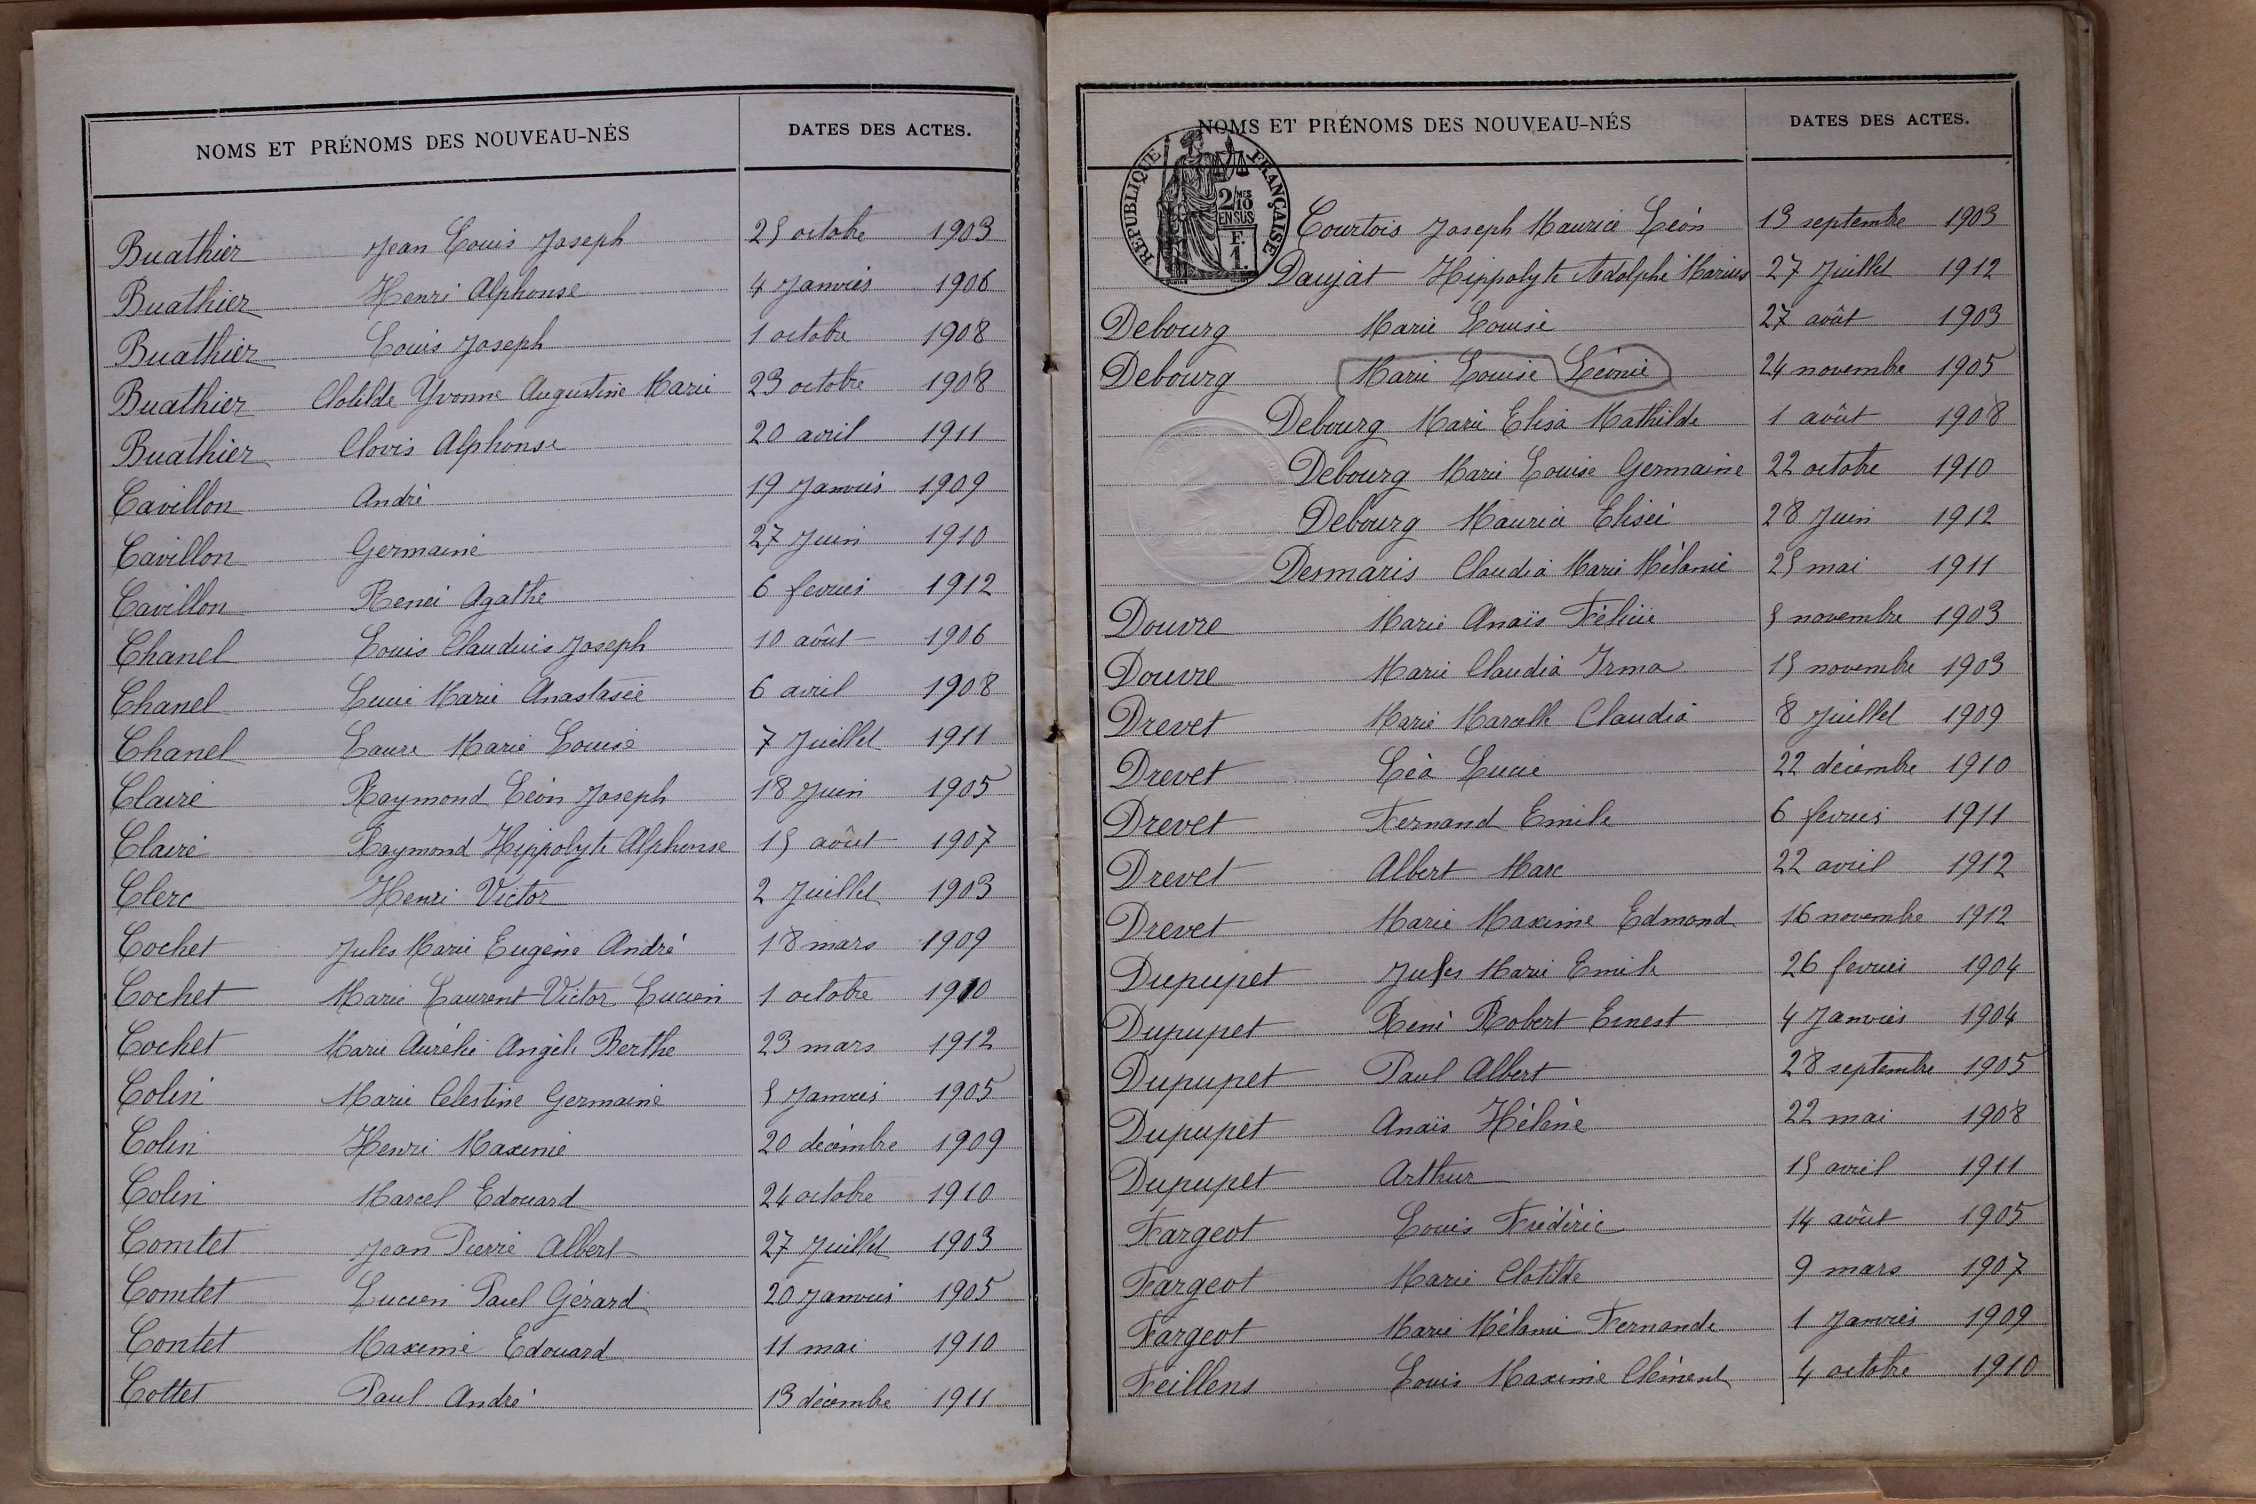 NOMS ET PRÉNOMS DES NOUVEAU-NÉS DATES DES ACTES.
Buathier Jean Louis Joseph 25 octobre 1903
Buathier Henri Alphonse 4 Janvier 1906
Buathier Louis Joseph 1 octobre 1908
Buathier Clotilde Yvonne Augustine Marie 23 octobre 1908
Buathier Clovis Alphonse 20 avril 1911
Cavillon André 19 Janvier 1909
Cavillon Germaine 27 Juin 1910
Cavillon Renée Agathe 6 fevrier 1912
Chanel Louis Claudius Joseph 10 aôut 1906
Chanel Lucie Marie Anastasie 6 avril 1908
Chanel Laure Marie Louise 7 Juillet 1911
Claire Raymond Léon Joseph 18 Juin 1905
Claire Raymond Hippolyte Alphonse 15 aôut 1907
Clerc Henri Victor 2 Juillet 1903
Cochet Jules Marie Eugène André 18 mars 1909
Cochet Marie Laurent Victor Lucien 1 octobre 1910
Cochet Marie Aurélie Angèle Berthe 23 mars 1912
Colin Marie Celestine Germaine 5 Janvier 1905
Colin Henri Maxime 20 decémbre 1909
Colin Marcel Edouard 24 octobre 1910
Comtet Jean Pierre Albert 27 Juillet 1903
Comtet Lucien Paul Gérard 20 Janvier 1905
Contet Maxime Edouard 11 mai 1910
Cottet Paul André 13 décembre 1911
NOMS ET PRÉNOMS DES NOUVEAU-NÉS DATES DES ACTES.
RÉPUBLIQUE FRANÇAISE
2/10 MES
EN SUS
F.
1.
Courtois Joseph Maurice Léon 13 septembre 1903
Daujat Hippolyte Adolphe Marius 27 Juillet 1912
Debourg Marie Louise 27 août 1903
Debourg Marie Louise Léonie 24 novembre 1905
Debourg Marie Elisa Mathilde 1 août 1908
Debourg Marie Louise Germaine 22 octobre 1910
Debourg Maurice Elisée 28 Juin 1912
Desmaris Claudia Marie Mélanie 25 mai 1911
Douvre Marie Anaïs Félicie 5 novembre 1903
Douvre Marie Claudia Irma 15 novembre 1903
Drevet Marie Marcelle Claudia 8 Juillet 1909
Drevet Léa Lucie 22 décembre 1910
Drevet Fernand Emile 6 fevrier 1911
Drevet Albert Marc 22 avril 1912
Drevet Marie Maxime Edmond 16 novembre 1912
Dupupet Jules Marie Emile 26 fevrier 1904
Dupupet René Robert Ernest 4 Janvier 1904
Dupupet Paul Albert 28 septembre 1905
Dupupet Anaïs Hélène 22 mai 1908
Dupupet Arthur 15 avril 1911
Fargeot Louis Frédéric 14 aôut 1905
Fargeot Marie Clotilde 9 mars 1907
Fargeot Marie Mélanie Fernande 1 Janvier 1909
Feillens Louis Maxime Clément 4 octobre 1910